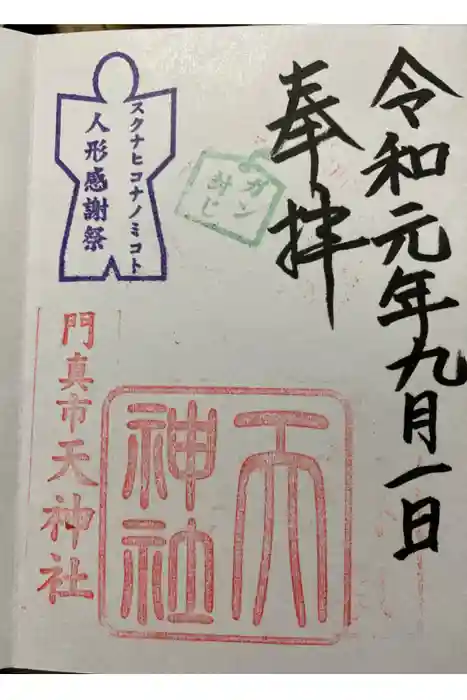 令和元年九月一日
奉拝
ガン
封じ
スクナヒコナノミコト
人形感謝祭
天
神社
門真市天神社